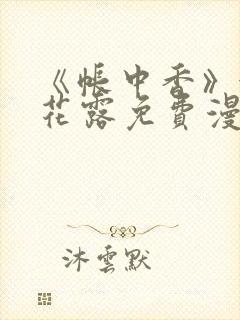 《帳中香》
花露免費漫
沐雲默